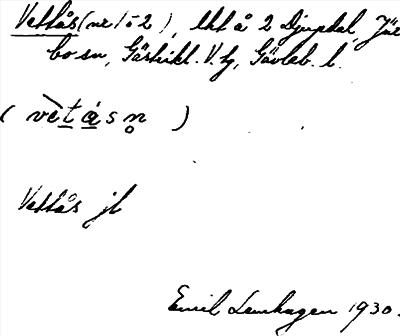 Vettås (nr 1-2), lht å 2 Djupdal, Jär
bo sn, Gästrikl. V. tg, Gävleb. l.
(vètåsn)
Vettås jb
Emil Lenhagen 1930.